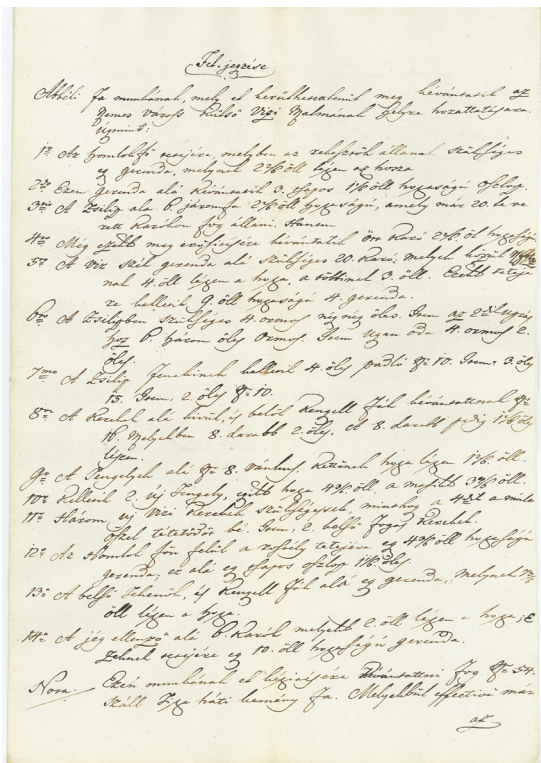 Fel jegzése
Abbéli fa munkának, mely el kerülhetetlenül meg kévántatik az
Nemes Város külső Vizi Malmának helyre hozattatására
úgymint:
1ő Az homlokfő részére, melyben az rekesztők állanak szükséges
eg gerenda, melynek 2½ öll légyen az hossza
2or Ezen gerenda alá kévántatik 3. csapos 1½ öll hoszaságú oszlop.
3or A Zsilip alá 6. járom 2½ öll hoszaságú, amely már 20. le ve
rett karókon fog állani. Hanem
4er Még meg erősítésére kévántatik öt karó 2½ öl hoszaságú
5ör A Víz skél gerenda alá szükséges 20. Karó, melyek közül
nak 4. öll légyen a hosza, a többinek 3. öll. Ezek teteje
re kelletik 9. öll hoszaságú 4. gerenda.
6or A Zsilipben szükséges 4. ormos nég nég öles. Item az 2
hoz 6. három öles Ormos. Item Ugyan oda 4. ormos 2.
öles.
7mo A Zsilip fenekinek kelletik 4 öles padló N 10. Item: 3. öles
15. Item. 2. öles N 10.
8or A Kerekek alá kívül, és belől Rengell fák kévántattnak N
16. Melyekben 8. darabb 2. öles. A 8. darabb pedig 1½ öles
légyen.
9o A Tengelyek alá N 8. vánkus, kettőnek hosza légyen 1½ öll.
10er Kelletik 2. új Tengely, egyik hosza 4½ öll, a másik 3½ öll.
11er Három új Vizi Kerekek szükségesek, minthogy a 4dik a múlt
ősszel tétetődött bé. Item. 2. belső fogas Kerekek.
12o Az Homlok főn felül a tetejére eg 4½ öll hoszaságú
gerenda; ez alá eg csapos oszlop 1½ öles.
13o A belső Rengell fák alá eg gerenda, melynek
öll légyen a hosza.
14o A jég ellenző alá 6. Karók melyek 2. öll légyen a hosza; E
zeknek részére eg 10. öll hoszaságú gerenda.
Nota. Ezen munkának el végzésére kévántattni fog N 54.
száll Tisza háti kemény fa. Melyekbül effective már
az